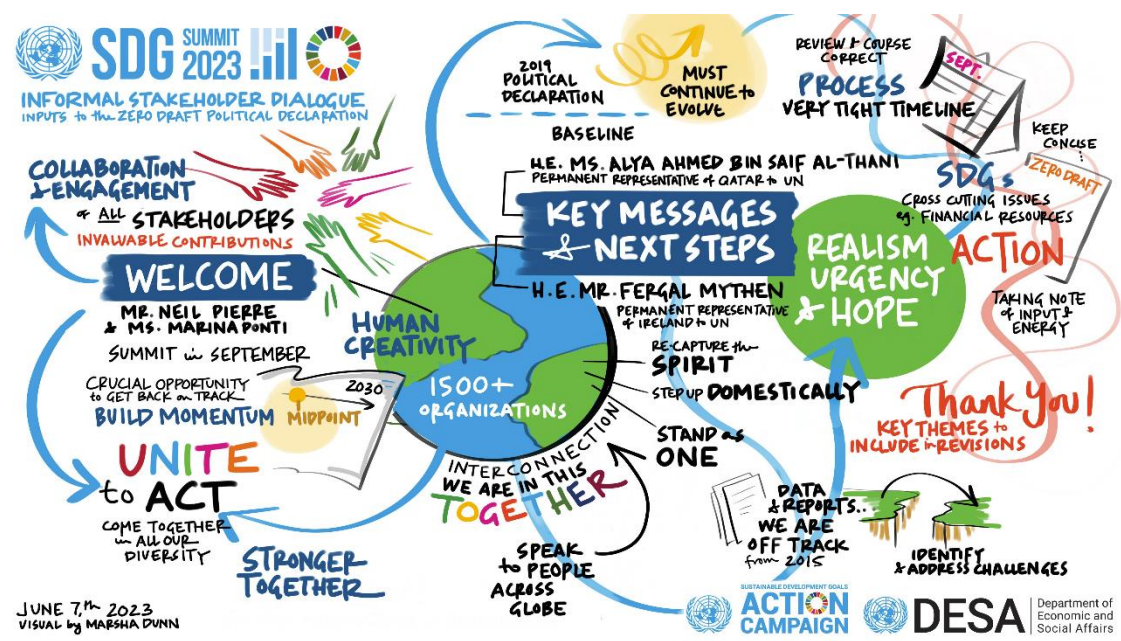 SDG SUMMIT 2023
INFORMAL STAKEHOLDER DIALOGUE
INPUTS to the ZERO DRAFT POLITICAL DECLARATION
COLLABORATION
& ENGAGEMENT
of ALL STAKEHOLDERS
INVALUABLE CONTRIBUTIONS
WELCOME
MR. NEIL PIERRE
& MS. MARINA PONTI
SUMMIT in SEPTEMBER
CRUCIAL OPPORTUNITY
to GET BACK on TRACK
BUILD MOMENTUM
UNITE
to ACT
COME TOGETHER
in ALL OUR
DIVERSITY
STRONGER
TOGETHER
2030
MIDPOINT
HUMAN
CREATIVITY
1500+
ORGANIZATIONS
INTERCONNECTION
WE ARE IN THIS
TOGETHER
SPEAK
to PEOPLE
ACROSS
GLOBE
2019
POLITICAL
DECLARATION
BASELINE
MUST
CONTINUE to
EVOLVE
H.E. MS. ALYA AHMED BIN SAIF AL-THANI
PERMANENT REPRESENTATIVE of QATAR to UN
KEY MESSAGES
& NEXT STEPS
H.E. MR. FERGAL MYTHEN
PERMANENT REPRESENTATIVE
of IRELAND to UN
RE-CAPTURE the
SPIRIT
STEP UP DOMESTICALLY
STAND as
ONE
REALISM
URGENCY
& HOPE
REVIEW & COURSE
CORRECT
PROCESS
VERY TIGHT TIMELINE
SEPT.
KEEP
CONCISE
ZERO DRAFT
SDGs
CROSS CUTTING ISSUES
eg. FINANCIAL RESOURCES
ACTION
TAKING NOTE
of INPUT &
ENERGY
Thank You!
KEY THEMES to
INCLUDE in REVISIONS
DATA
& REPORTS..
WE ARE
OFF TRACK
from 2015
IDENTIFY
& ADDRESS CHALLENGES
JUNE 7,th 2023
VISUAL by MARSHA DUNN
SUSTAINABLE DEVELOPMENT GOALS
ACTION
CAMPAIGN
DESA
Department of
Economic and
Social Affairs